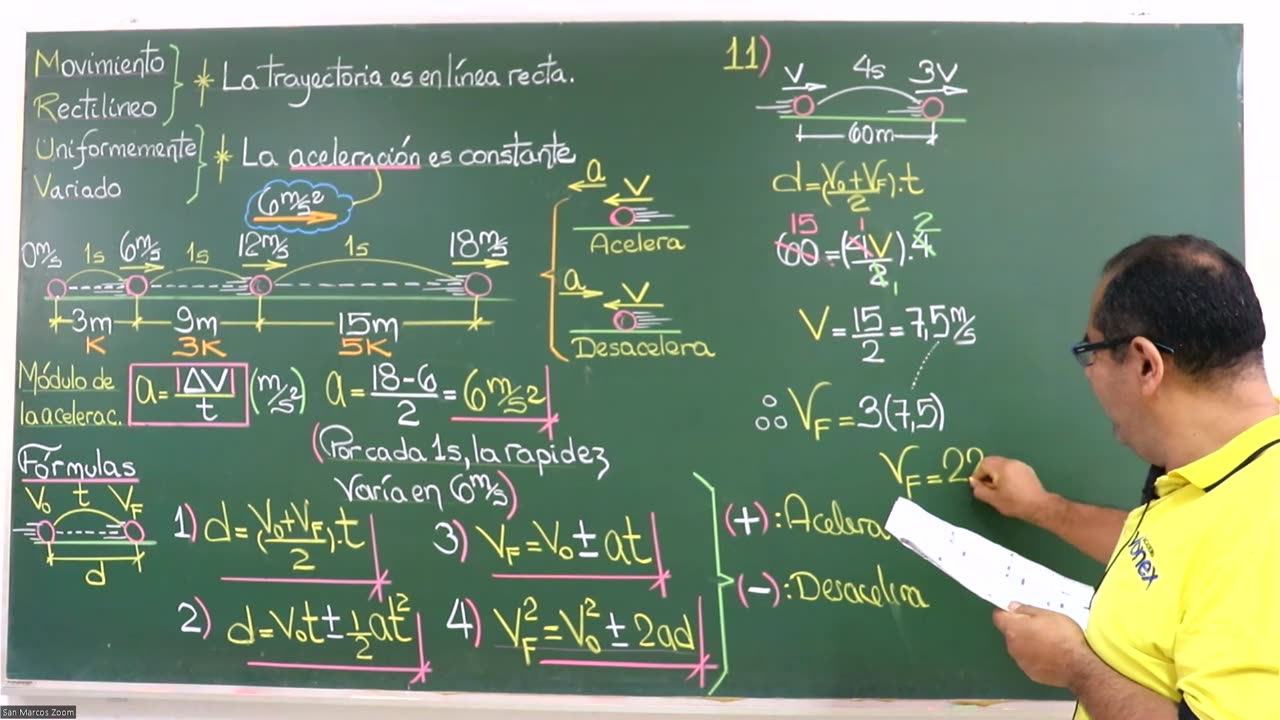 Movimiento
Rectilíneo
Uniformemente
Variado
* La trayectoria es en línea recta.
* La aceleración es constante
6m/s²
0m/s 1s 6m/s 1s 12m/s 1s 18m/s
3m 9m 15m
K 3K 5K
a V
Acelera
a V
Desacelera
Módulo de la acelerac.
a = |ΔV|/t (m/s²)
a = (18-6)/2 = 6m/s²
(Por cada 1s, la rapidez
Varía en 6m/s)
Fórmulas
V₀ t V_F
d
1) d = (V₀+V_F/2).t
2) d = V₀t ± 1/2 at²
3) V_F = V₀ ± at
4) V_F² = V₀² ± 2ad
(+): Acelera
(-): Desacelera
11)
V 4s 3V
60m
d = (V₀+V_F/2).t
15 1 2
60 = (4V/2).4
1
V = 15/2 = 7,5m/s
∴ V_F = 3(7,5)
V_F = 22
Vonex
San Marcos Zoom